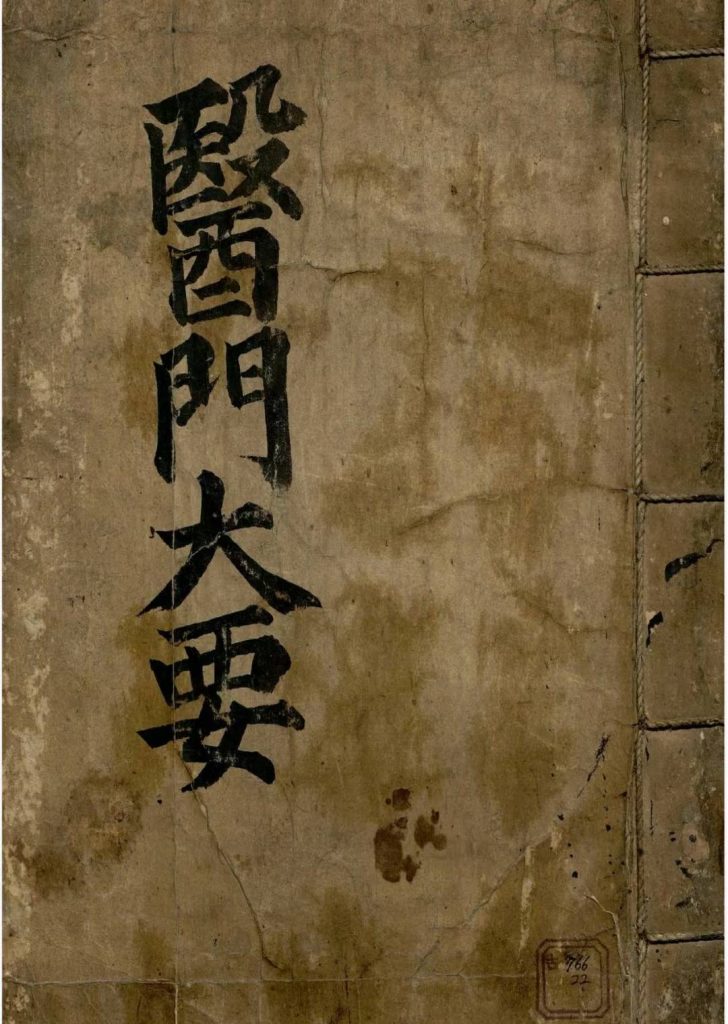 醫門大要
古 766
22